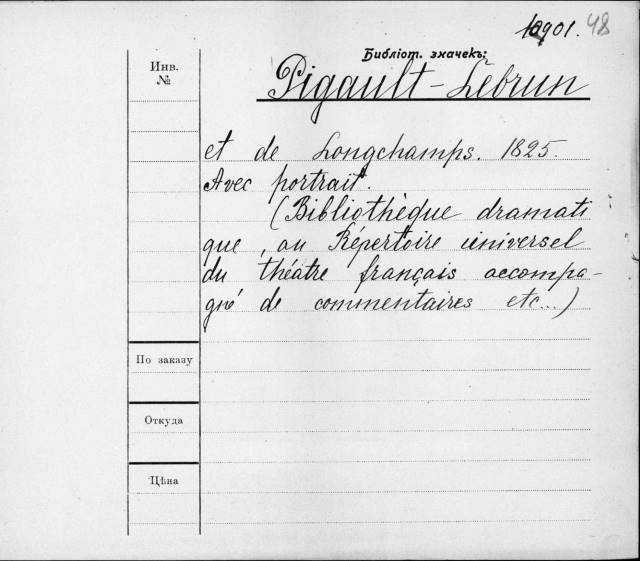 10901. 48
Библіот. значекъ:
Инв.
№
Pigault-Lebrun
et de Longchamps. 1825.
Avec portrait.
(Bibliothèque dramati
que, ou Répertoire universel
du théâtre français accompa-
gné de commentaires etc...)
По заказу
Откуда
Цѣна